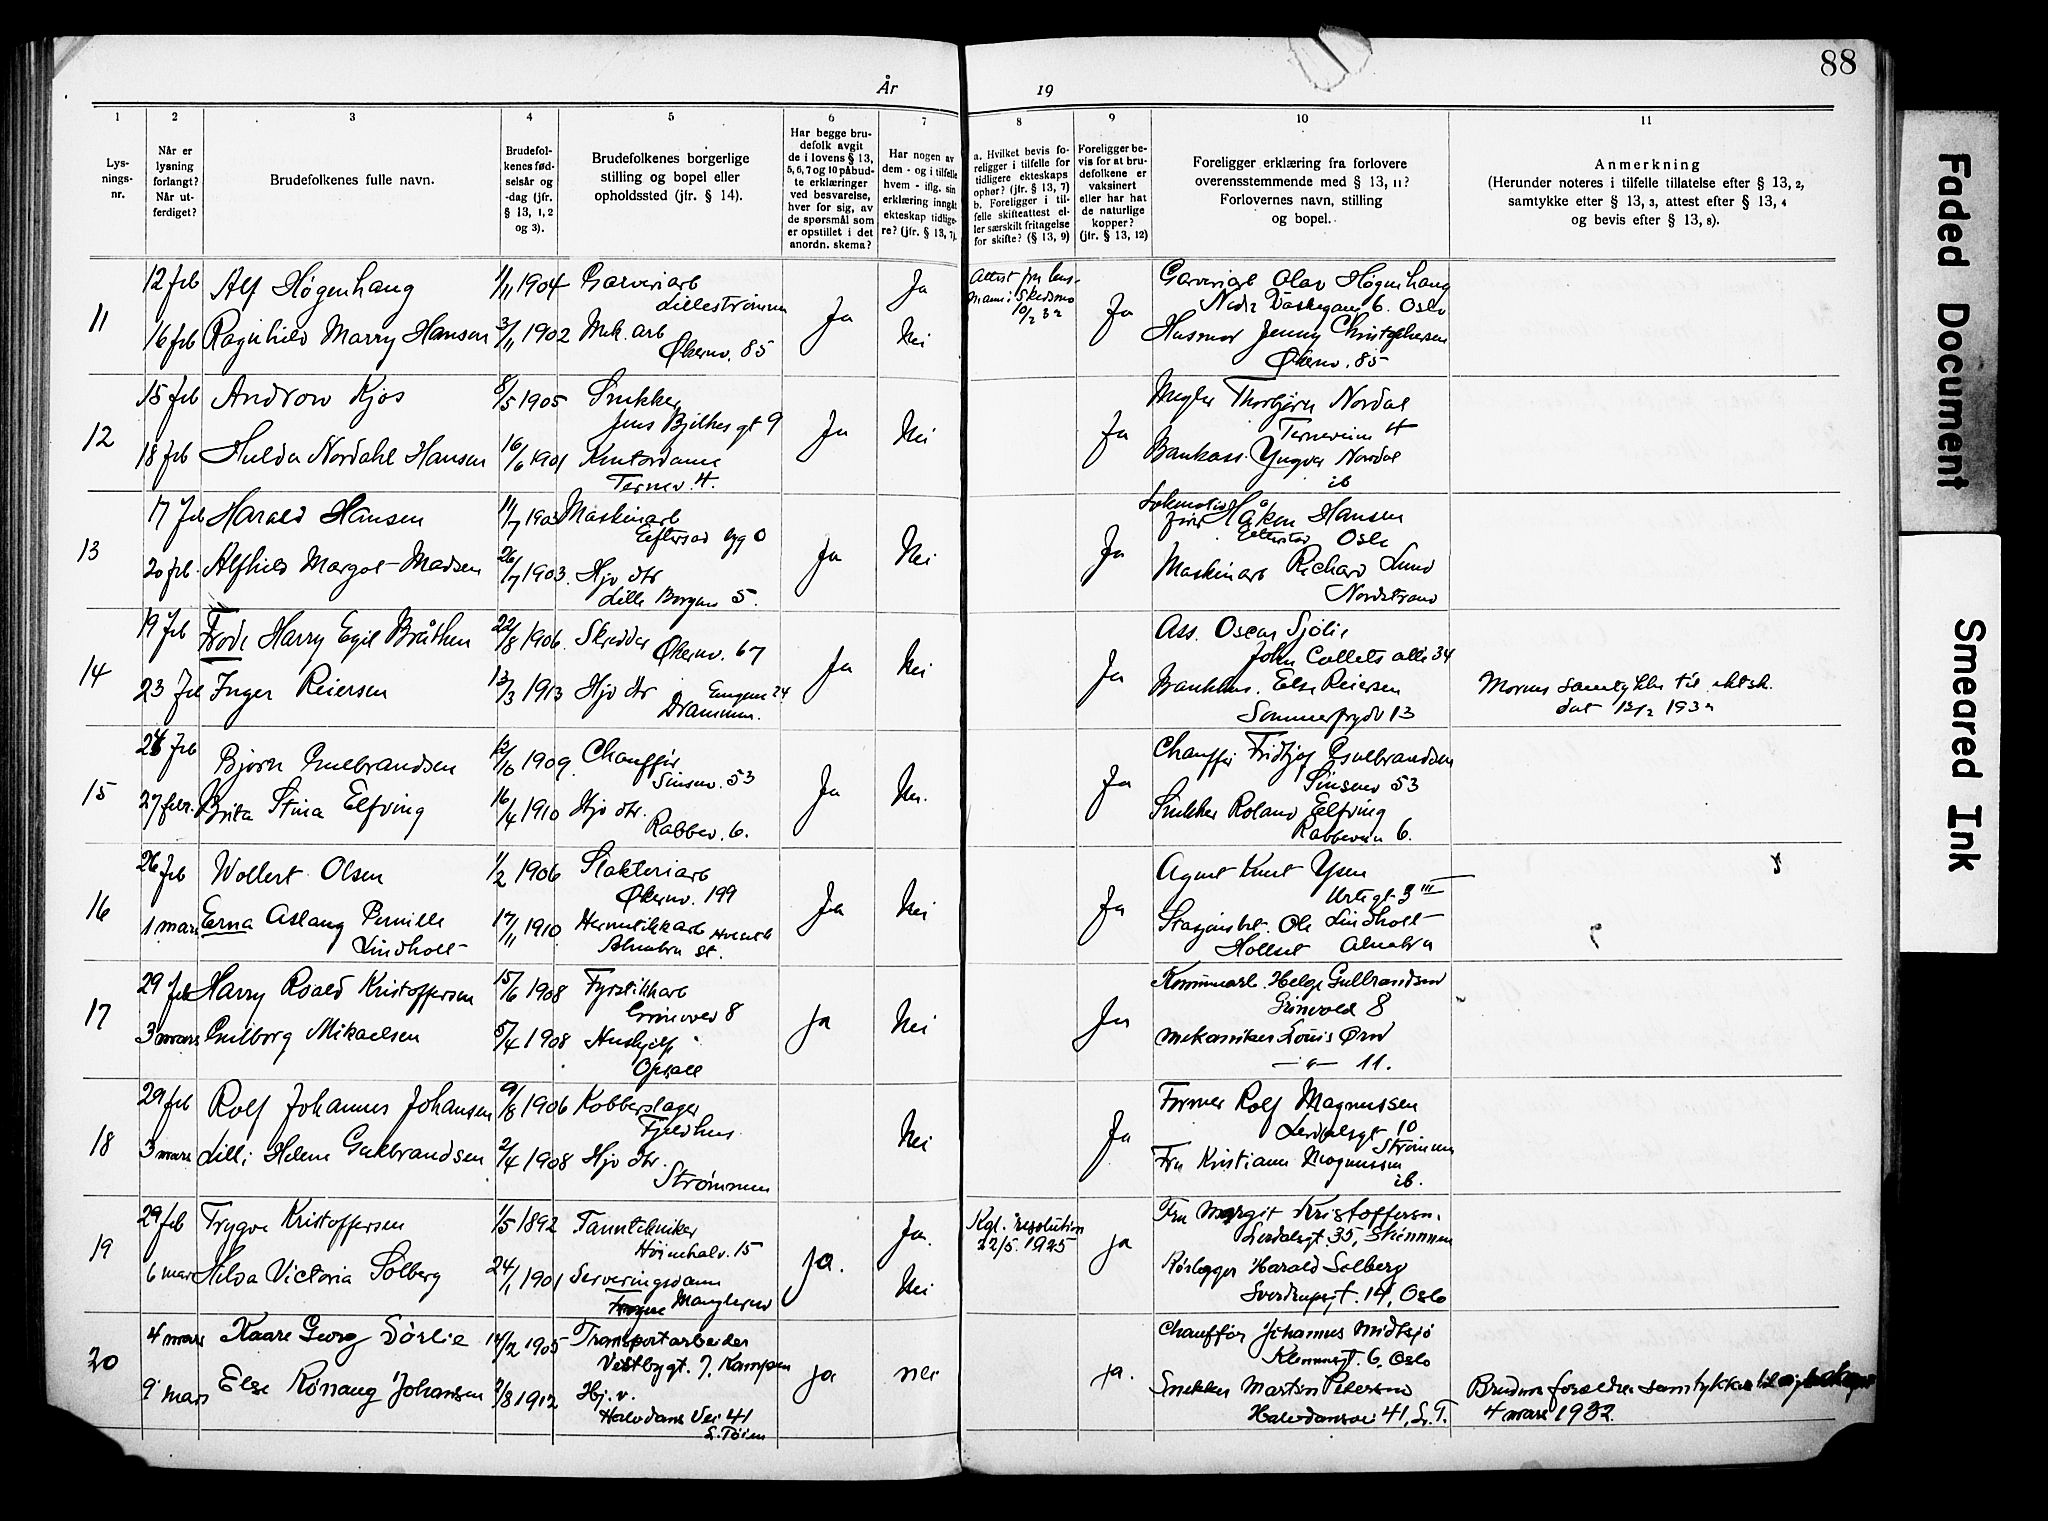 88
År 19
1 2 3 4 5 6 7 8 9 10 11
Lys-
nings-
nr.
Når er
lysning
forlangt?
Når ut-
ferdiget?
Brudefolkenes fulle navn.
Brudefol-
kenes fød-
selsår og
-dag (jfr.
§ 13, 1, 2
og 3).
Brudefolkenes borgerlige
stilling og bopel eller
opholdssted (jfr. § 14).
Har begge bru-
defolk avgit
de i lovens § 13,
5, 6, 7 og 10 påbud-
te erklæringer
ved besvarelse,
hver for sig, av
de spørsmål som
er opstillet i det
anordn. skema?
Har nogen av
dem - og i tilfelle
hvem - iflg. sin
erklæring inngåt
ekteskap tidlig-
re? (jfr. § 13, 7).
a. Hvilket bevis fo-
religger i tilfelle for
tidligere ekteskaps
ophør? (jfr. § 13, 7)
b. Foreligger i til-
felle skifteattest el-
ler særskilt fritagelse
for skifte? (§ 13, 9)
Foreligger be-
vis for at bru-
defolkene er
vaksinert
eller har hat
de naturlige
kopper?
(jfr. § 13, 12)
Foreligger erklæring fra forlovere
overensstemmende med § 13, 11?
Forlovernes navn, stilling
og bopel.
Anmerkning
(Herunder noteres i tilfelle tillatelse efter § 13, 2,
samtykke efter § 13, 3, attest efter § 13, 4
og bevis efter § 13, 8).
11
12 feb Alf Høgenhaug 1/11 1904 Garveriarb Ja
Lillestrømmen
16 feb Ragnhild Marry Hansen 3/11 1902 Mek. arb Ja Nei
Økernv. 85
Attest fra
i Skedsmo
10/2 32
Ja
Garveriarb Olav Høgenhaug
6. Oslo
Husmor Jenny Christophersen
Økernv. 85
12
15 feb Androw Kjos 8/5 1905 Snekker
Jens Bjelkes gt 9
18 feb Hulda Nordahl Hansen 16/6 1901 Kontordame Ja Nei
Ternev. 4.
Ja
Megler Thorbjørn Nordal
Terneveien 4
Bankass. Yngvar Nordal
ib
13
17 feb Harald Hansen 11/7 1903 Maskinarb
Eftersad byg 0
20 feb. Alfhild Margot Madsen 26/7 1903. Hjv dtr Ja Nei
Lille Borgens 5.
Ja
Lokomotiv
fører Håkon Hansen
Oslo
Maskinarb Richard Lund
Nordstrand
14
19 feb Frode Harry Egil Bråthen 22/8 1906. Skredder
Økernv. 67
23 feb Inger Reiersen 13/3 1913 Hjv dtr Ja Nei
Engene 24
Drammen.
Ja
Ass. Oscar Sjølie
John Collets alle 34
Else Reiersen
Sommerfrydv 13
Morens samtykke til ektsk.
dat 12/2 1932
15
24 feb Bjørn Gulbrandsen 12/10 1909. Chauffør
Sinsenv. 53
27 febr. Brita Stina Elfving 16/4 1910 Hjv dtr. Ja Nei.
Rabbev. 6.
Ja
Chauffør Fridtjof Gulbrandsen
Sinsenv 53
Snekker Roland Elfving
Rabbeveien 6.
16
26 feb Wollert Olsen 1/2 1906 Slakteriarb
Økernv. 199
1 mars Erna Aslaug Pernille 17/11 1910 Hermetikkarb Ja Nei
Lindholt Alnabru st.
Ja
Agent Knut Ysen
Urtegt 3 III
Stasjonsbet. Ole Lindholt
Holtet Alnabru
17
29 feb Harry Roald Kristoffersen 15/6 1908 Fyrstikkarb
Grinvold 8
3 mars Gulborg Mikaelsen 5/4 1908 Hushjelp Ja Nei
Opsall
Ja
Kommunearb. Helge Gulbrandsen
Grinvold 8
Mekaniker Louis Ørn
—"— 11.
18
29 feb Rolf Johannes Johansen 9/8 1906 Kobberslager
Fjeldhus.
3 mars Lilli Helene Gulbrandsen 2/4 1908 Hjv dtr. Nei
Strømmen
Ja
Former Rolf Magnussen
10
Strømmen
Fru Kristiane Magnussen
ib.
19
29 feb Trygve Kristoffersen 1/5 1892 Tanntekniker Ja.
Høyenhalv. 15
6 mar Hilda Victoria Solberg 24/1 1901 Serveringsdame Ja. Nei
Manglerud
Kgl. resolution
22/5. 1925
ja
Fru Margit Kristoffersen.
35,
Rørlegger Harald Solberg
Sverdrupsgt. 14, Oslo
20
4 mars Kaare Georg Sørlie 14/2 1905 Transportarbeider
Vestbygt. 7, Kampen
9 mars Else Rønaug Johansen 2/8 1912 Hj. v. ja nei
Halvdans Vei 41
L. Tøien
ja.
Chauffør Johannes Midtsjø
Klemmesgt. 6, Oslo
Snekker Martin Petersen
Halvdansvei 41, L. T.
Brudens foreldres samtykke til
4 mars 1932.
Faded Document
Smeared Ink